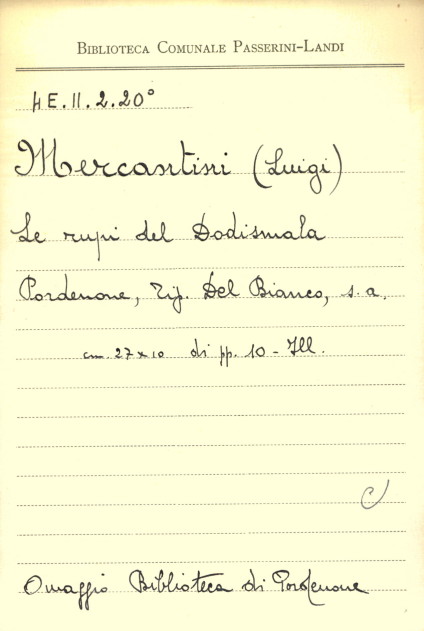 BIBLIOTECA COMUNALE PASSERINI-LANDI
4E.II.2.20°
Mercantini (Luigi)
Le rupi del Dodismala
Pordenone, Tip. Del Bianco, s. a.
cm. 27x10 di pp. 10 - Ill.
Omaggio Biblioteca di Pordenone